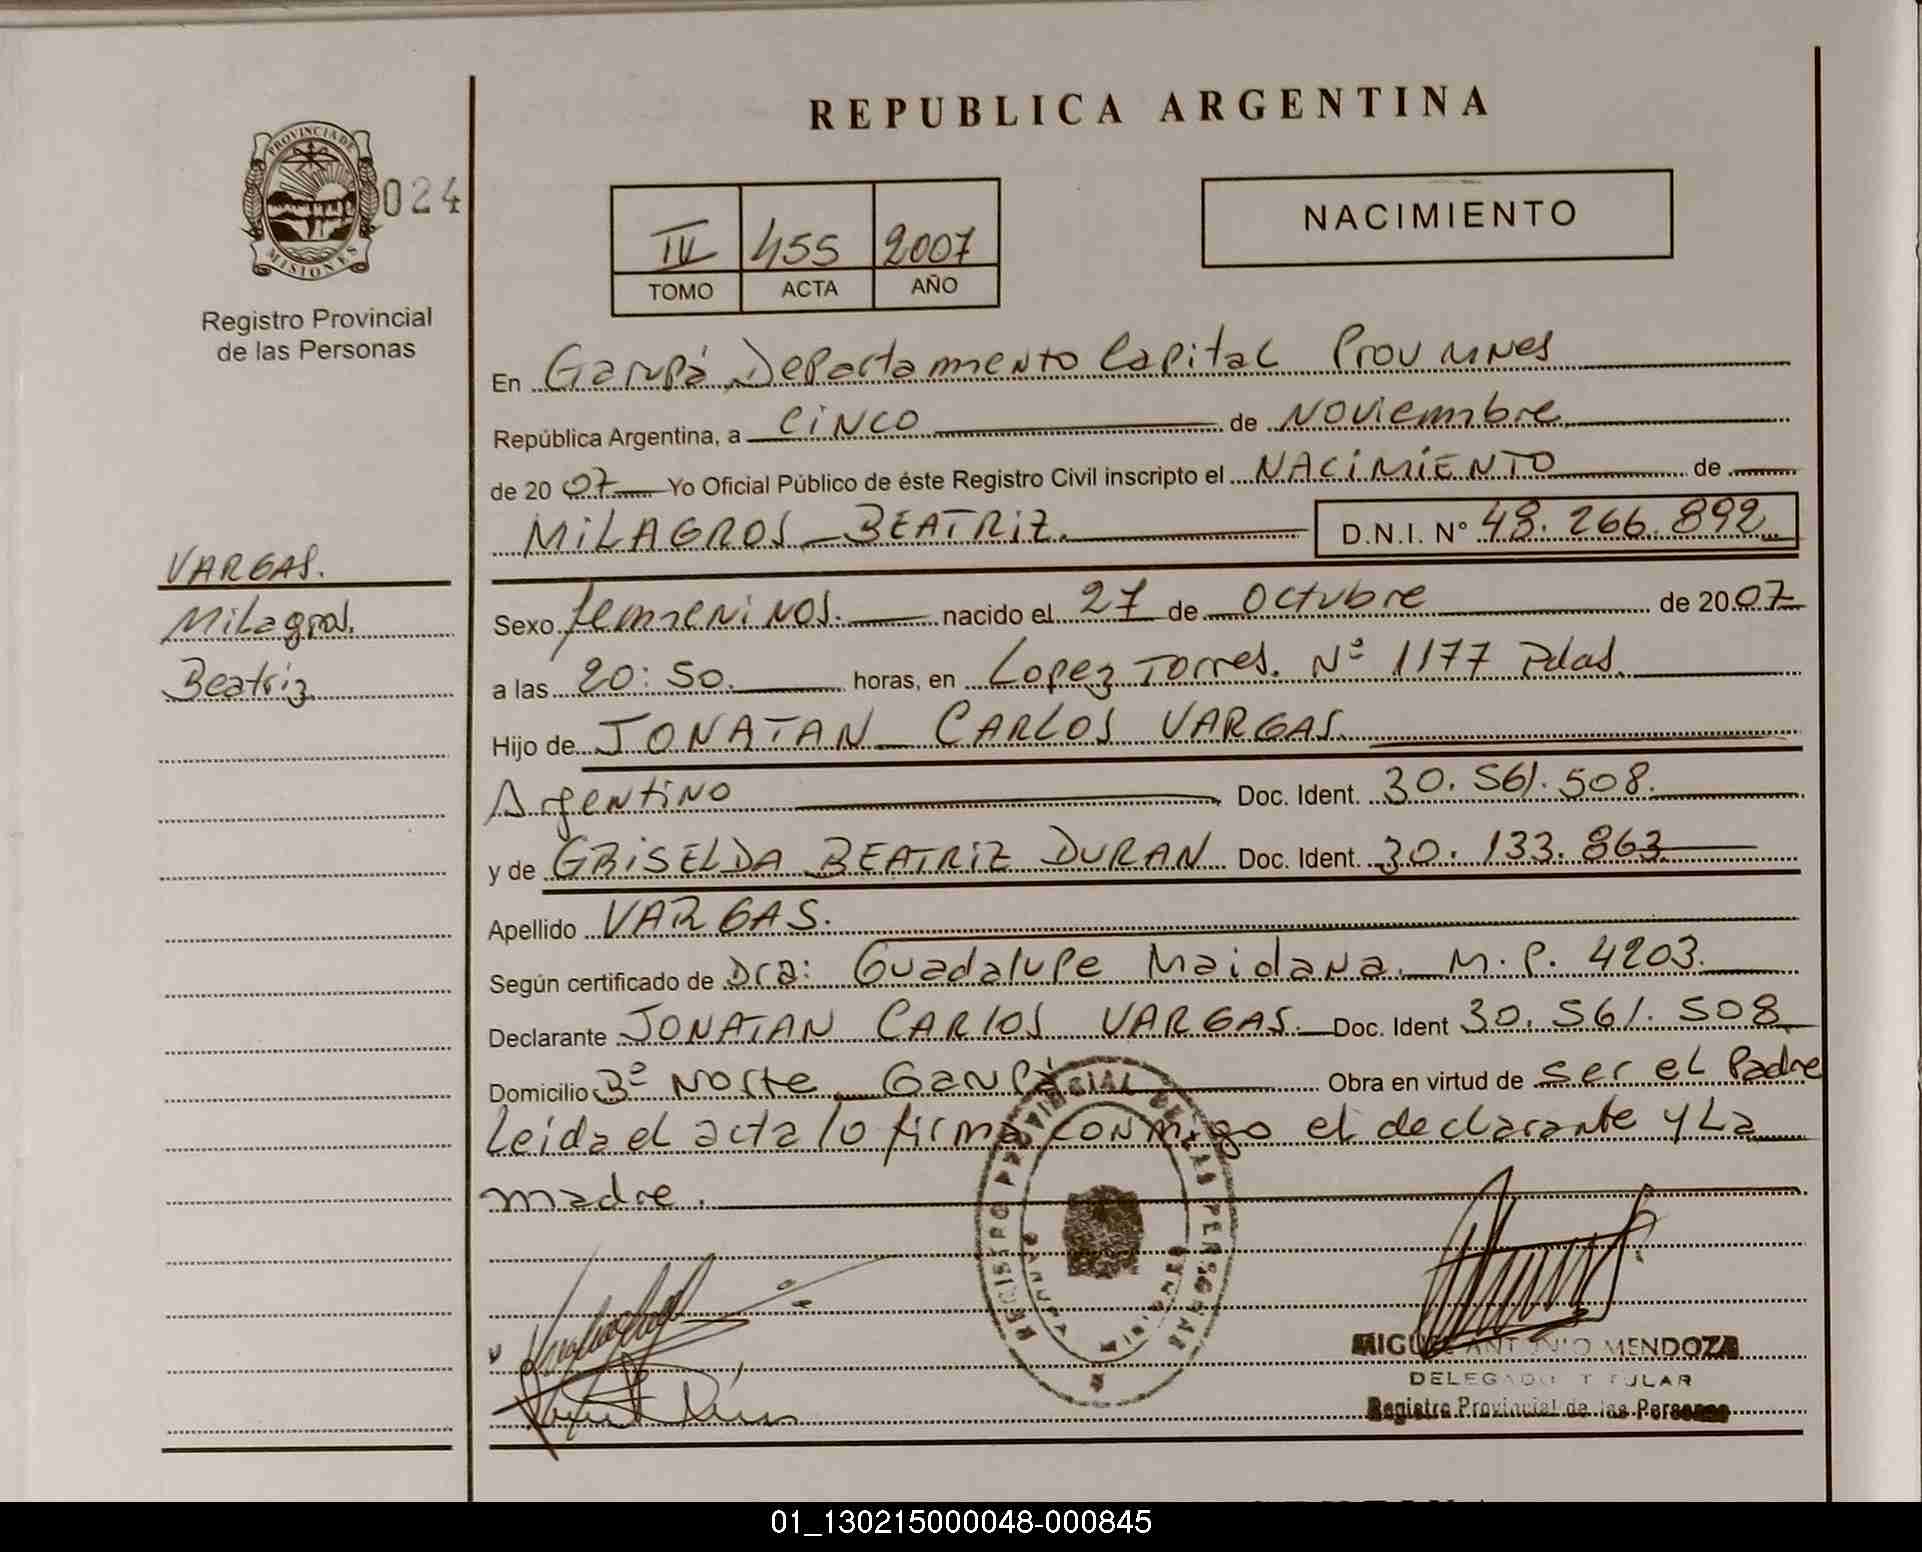 REPUBLICA ARGENTINA
PROVINCIA DE
MISIONES
024
Registro Provincial
de las Personas
IV 455 2007
TOMO ACTA AÑO
NACIMIENTO
En Garupá Departamento Capital Prov Mnes
República Argentina, a cinco de Noviembre
de 2007 Yo Oficial Público de éste Registro Civil inscripto el NACIMIENTO de
MILAGROS BEATRIZ. D.N.I. Nº 48.266.892
VARGAS.
Milagros.
Beatriz
Sexo femeninos. nacido el 27 de Octubre de 2007
a las 20:50. horas, en Lopez Torres. Nº 1177 Pdas.
Hijo de JONATAN CARLOS VARGAS.
Argentino Doc. Ident. 30.561.508.
y de GRISELDA BEATRIZ DURAN Doc. Ident. 30.133.863
Apellido VARGAS.
Según certificado de Dra: Guadalupe Maidana. M.P. 4203.
Declarante JONATAN CARLOS VARGAS. Doc. Ident 30.561.508
Domicilio Bº Norte Garupá Obra en virtud de ser el Padre
Leida el acta lo firma conmigo el declarante y La
madre.
REGISTRO PROVINCIAL DE LAS PERSONAS
MIGUEL ANTONIO MENDOZA
DELEGADO TITULAR
Registro Provincial de las Personas
01_130215000048-000845